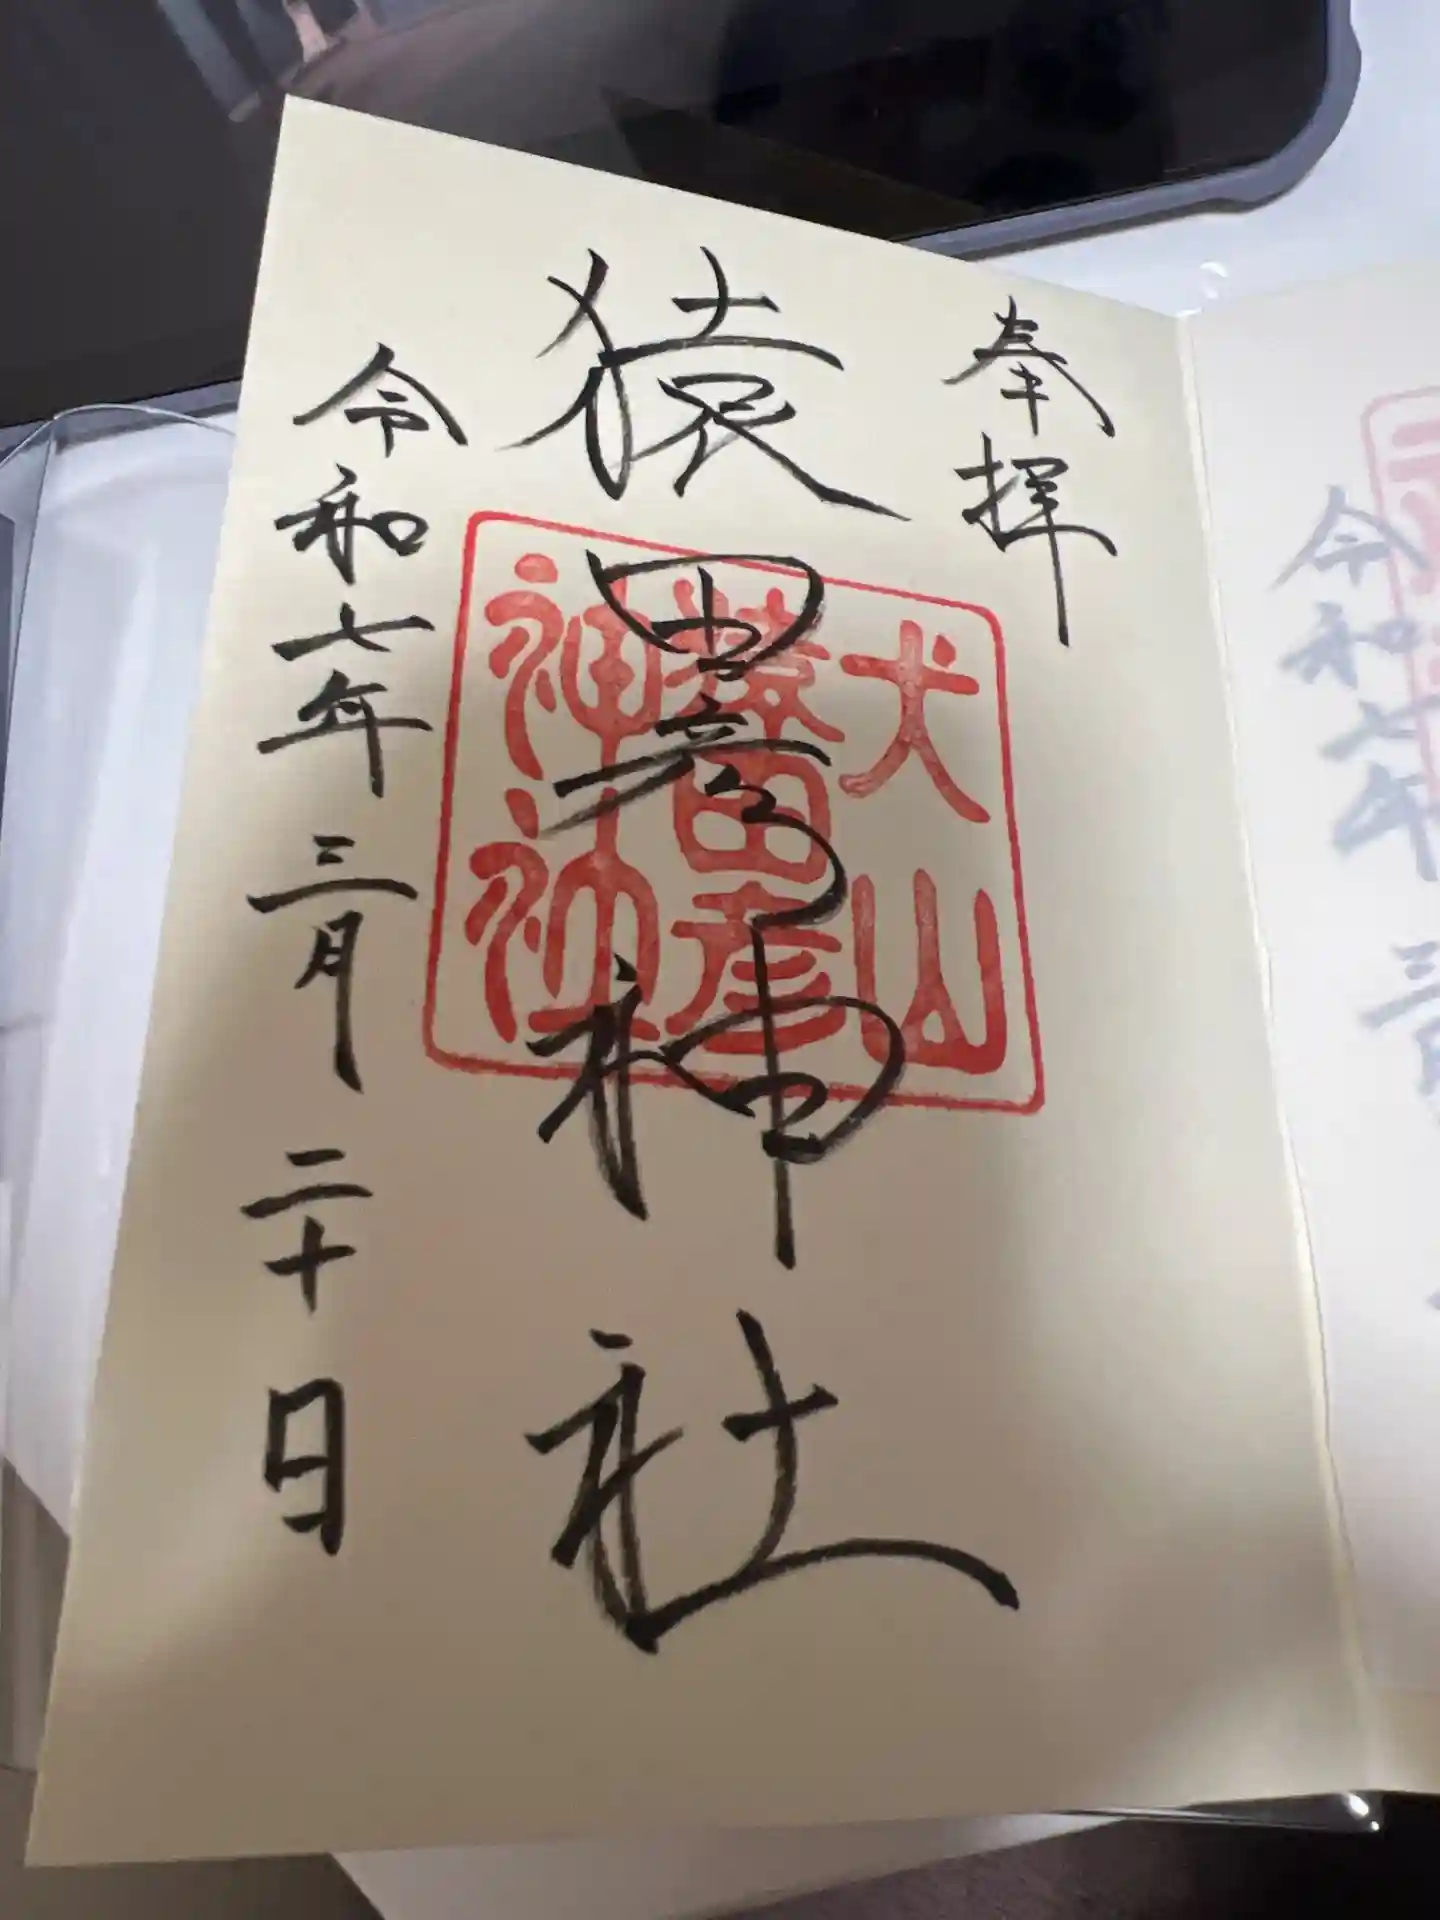 奉拝
犬山
猿田彦
神社
猿田彦神社
令和七年三月二十日
令和七年三月